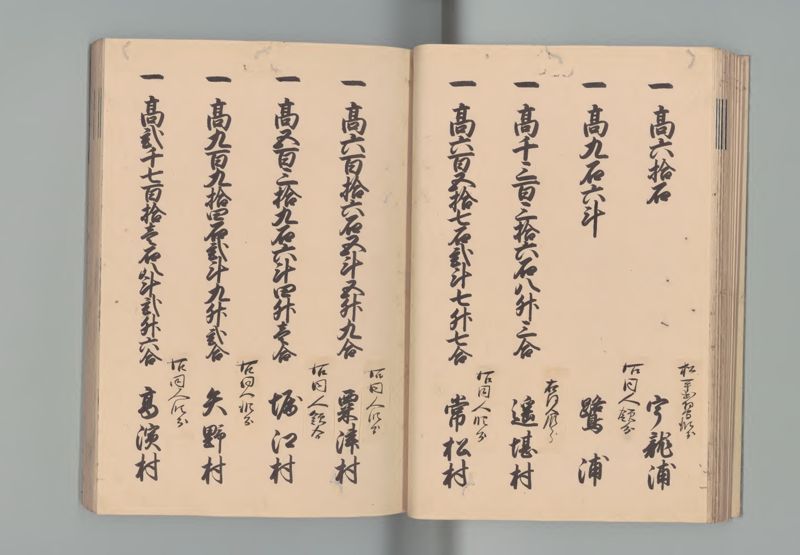 一 高六拾石
宇龍浦
一 高九石六斗
右同人領分
鷺浦
一 高千三百三拾六石八升三合
遥堪村
一 高六百五拾七石弐斗七升七合
右同人領分
常松村
一 高六百拾六石五斗五升九合
右同人領分
粟津村
一 高五百三拾九石六斗四升壱合
右同人領分
堀江村
一 高九百九拾四石弐斗九升弐合
右同人領分
矢野村
一 高弐千七百拾壱石八斗弐升六合
右同人領分
高濱村